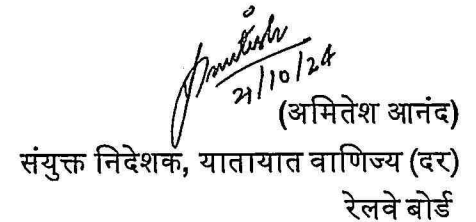 Amitesh
21/10/24
(अमितेश आनंद)
संयुक्त निदेशक, यातायात वाणिज्य (दर)
रेलवे बोर्ड